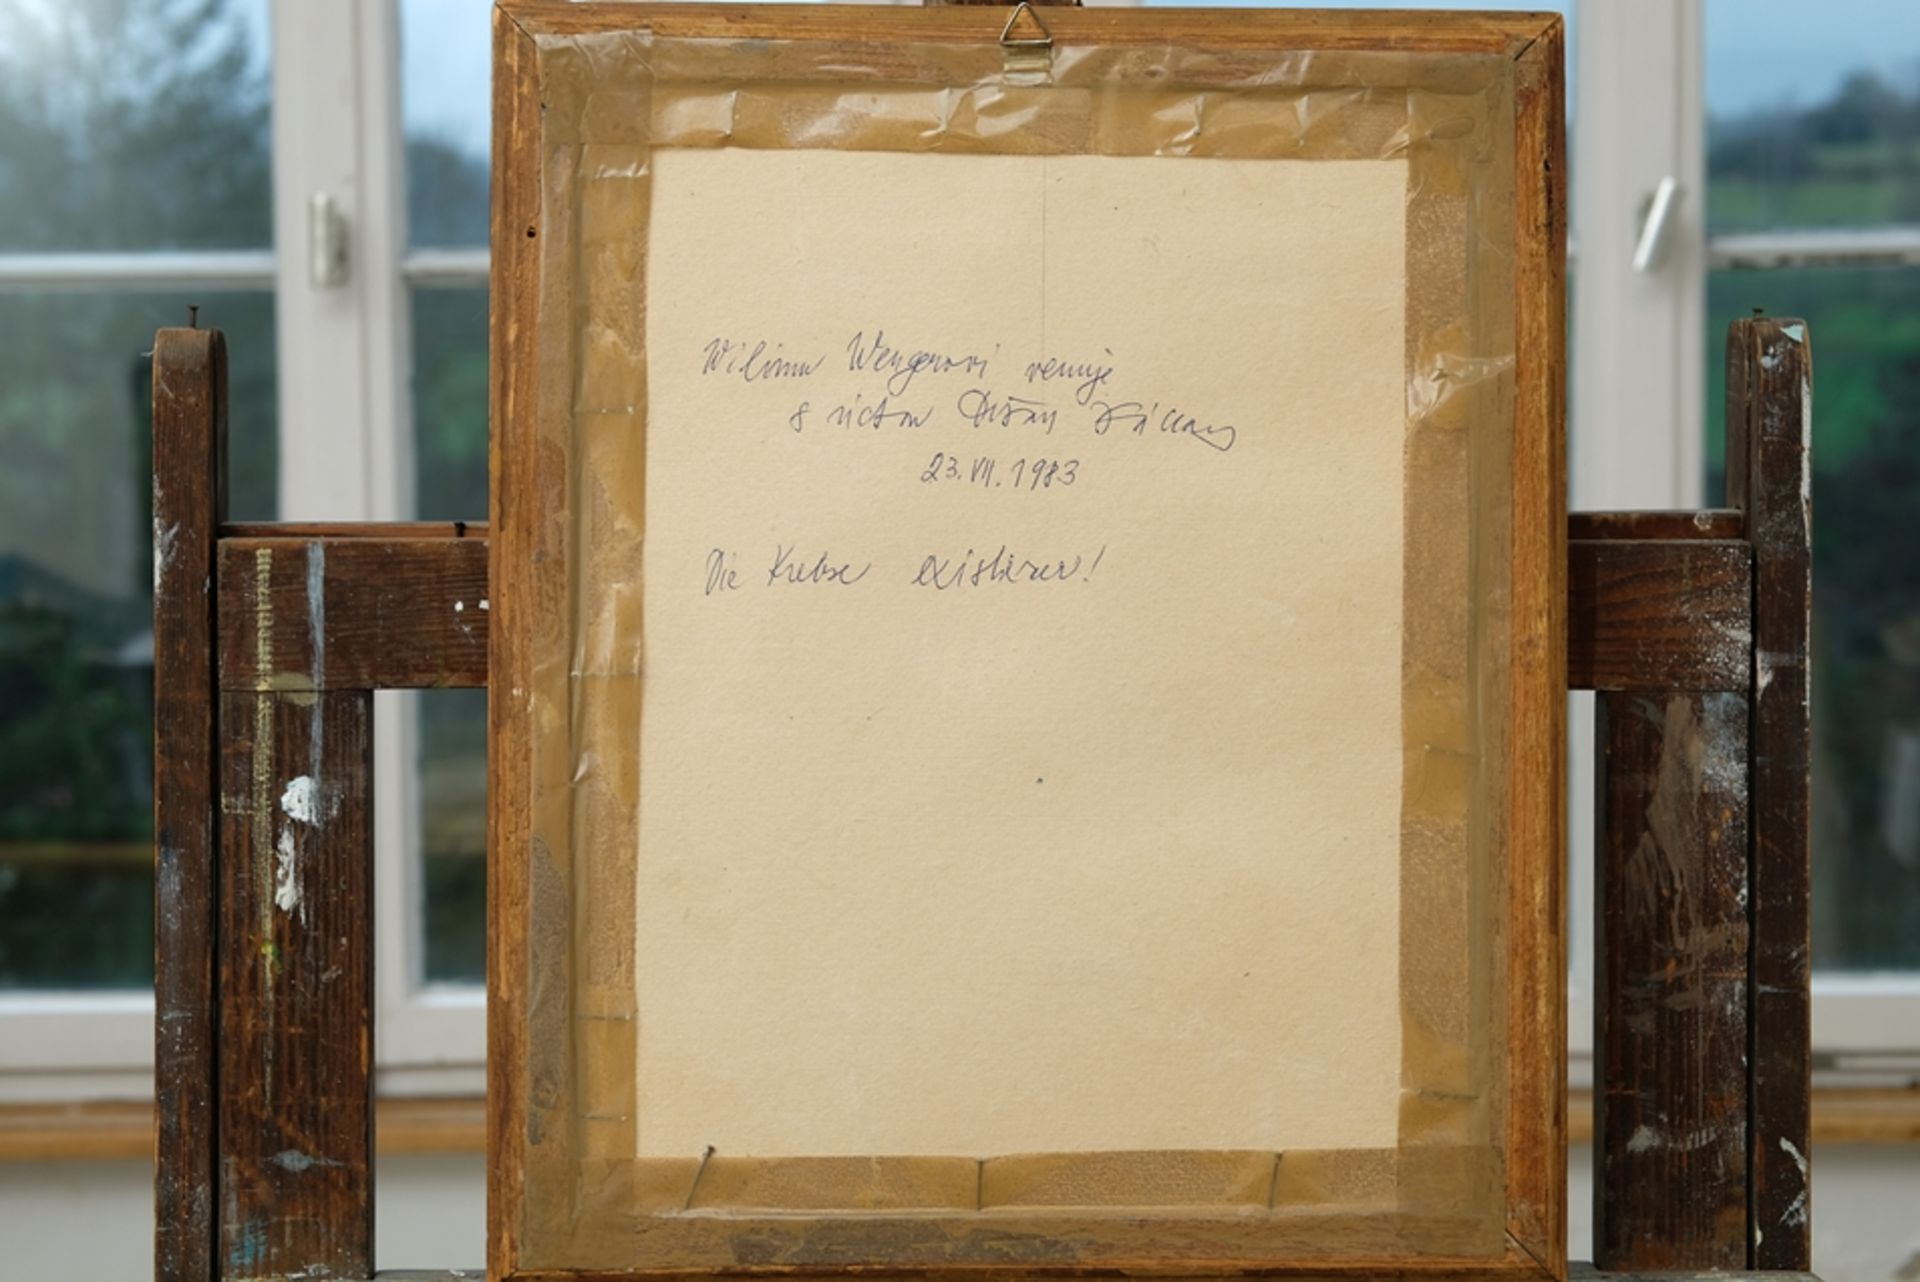 Wilimu Wengerovi venuje
s úctou Dušan Kállay
23.VII.1983
Die Krebse existieren!